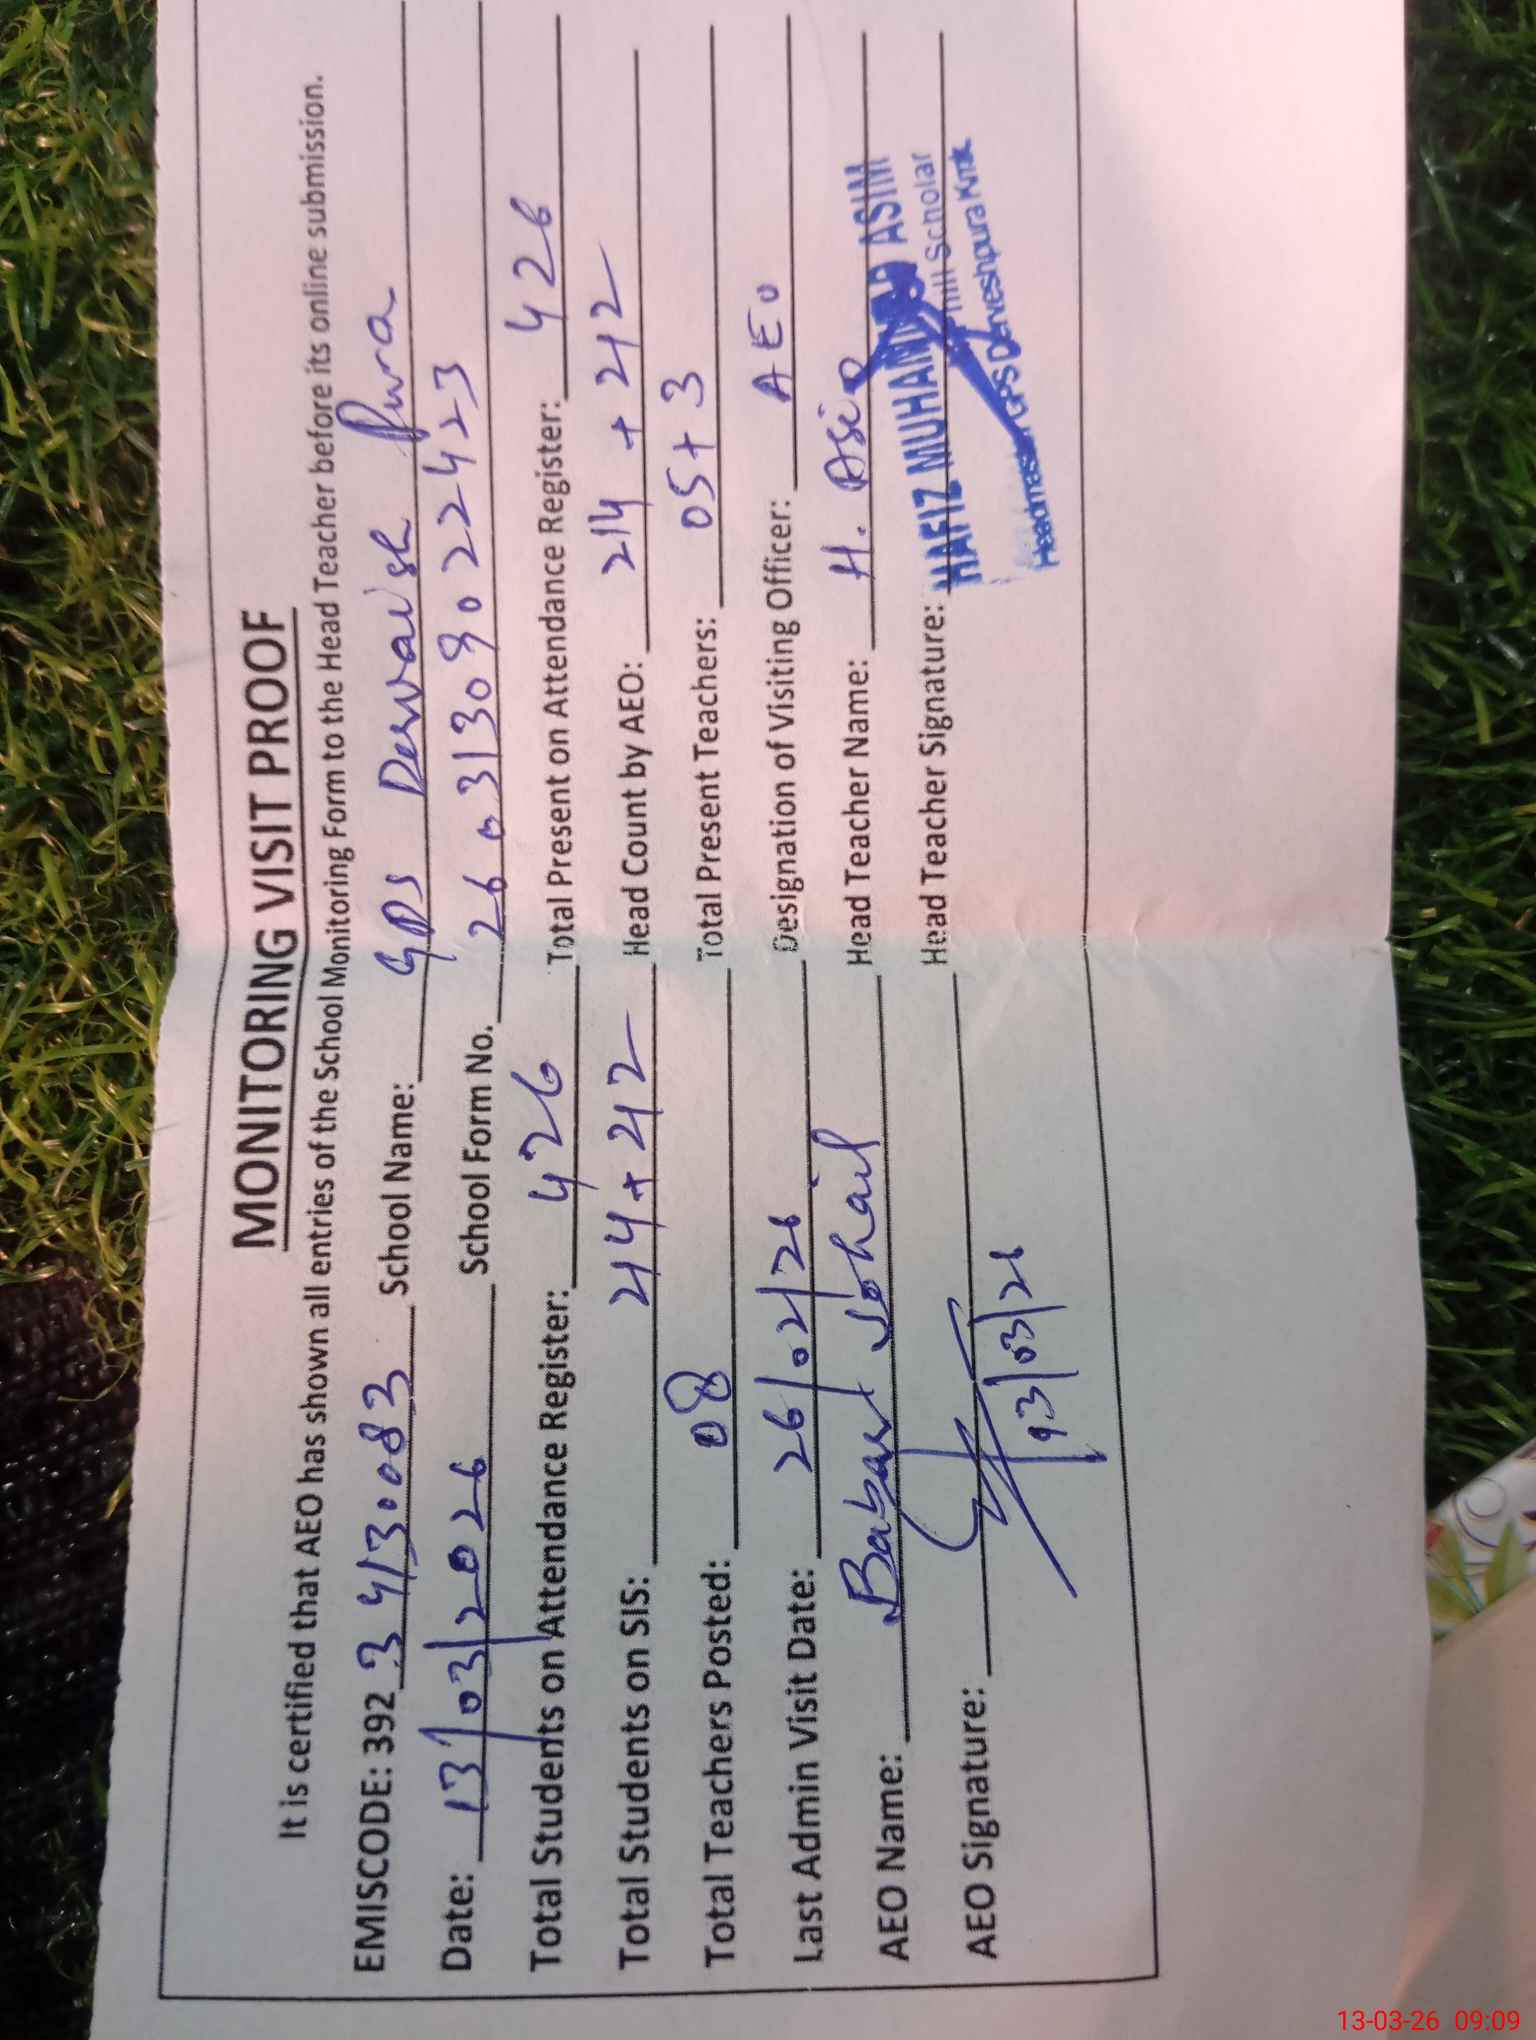 MONITORING VISIT PROOF
It is certified that AEO has shown all entries of the School Monitoring Form to the Head Teacher before its online submission.
EMISCODE: 392 3 4/3.083 School Name: GPS Dervaish Pura
Date: 13/03/2026 School Form No. 26031309022423
Total Students on Attendance Register: 426 Total Present on Attendance Register: 426
Total Students on SIS: 214+212 Head Count by AEO: 214 + 212
Total Teachers Posted: 08 Total Present Teachers: 05+3
Last Admin Visit Date: 26/02/26 Designation of Visiting Officer: AEO
AEO Name: Babar Sohail Head Teacher Name: H. Asim
AEO Signature: 13/03/26 Head Teacher Signature: HAFIZ MUHAMMAD ASIM
Phill Scholar
Headmaster GPS Derveshpura KMK
13-03-26 09:09